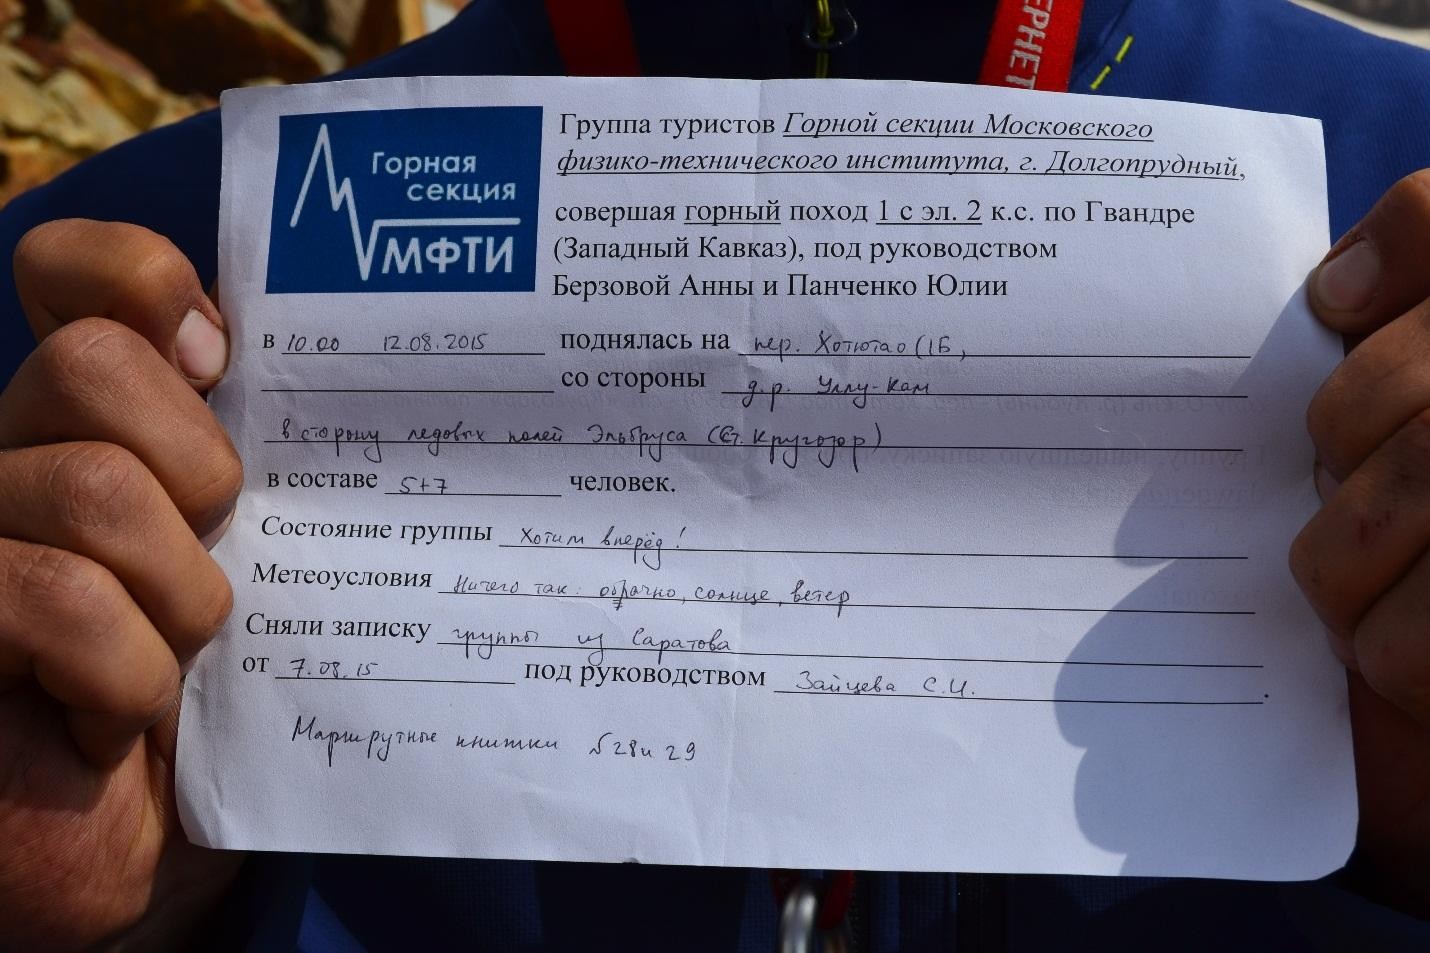 ЕРНЕТ
Горная
секция
МФТИ
Группа туристов Горной секции Московского
физико-технического института, г. Долгопрудный,
совершая горный поход 1 с эл. 2 к.с. по Гвандре
(Западный Кавказ), под руководством
Берзовой Анны и Панченко Юлии
в 10.00 12.08.2015 поднялась на пер. Хотютао (1Б,
со стороны д.р. Уллу-Кам
в сторону ледовых полей Эльбруса (Ст. Кругозор)
в составе 5+7 человек.
Состояние группы Хотим вперёд!
Метеоусловия Ничего так: облачно, солнце, ветер
Сняли записку группы из Саратова
от 7.08.15 под руководством Зайцева С.И.
Маршрутные книжки №28 и 29